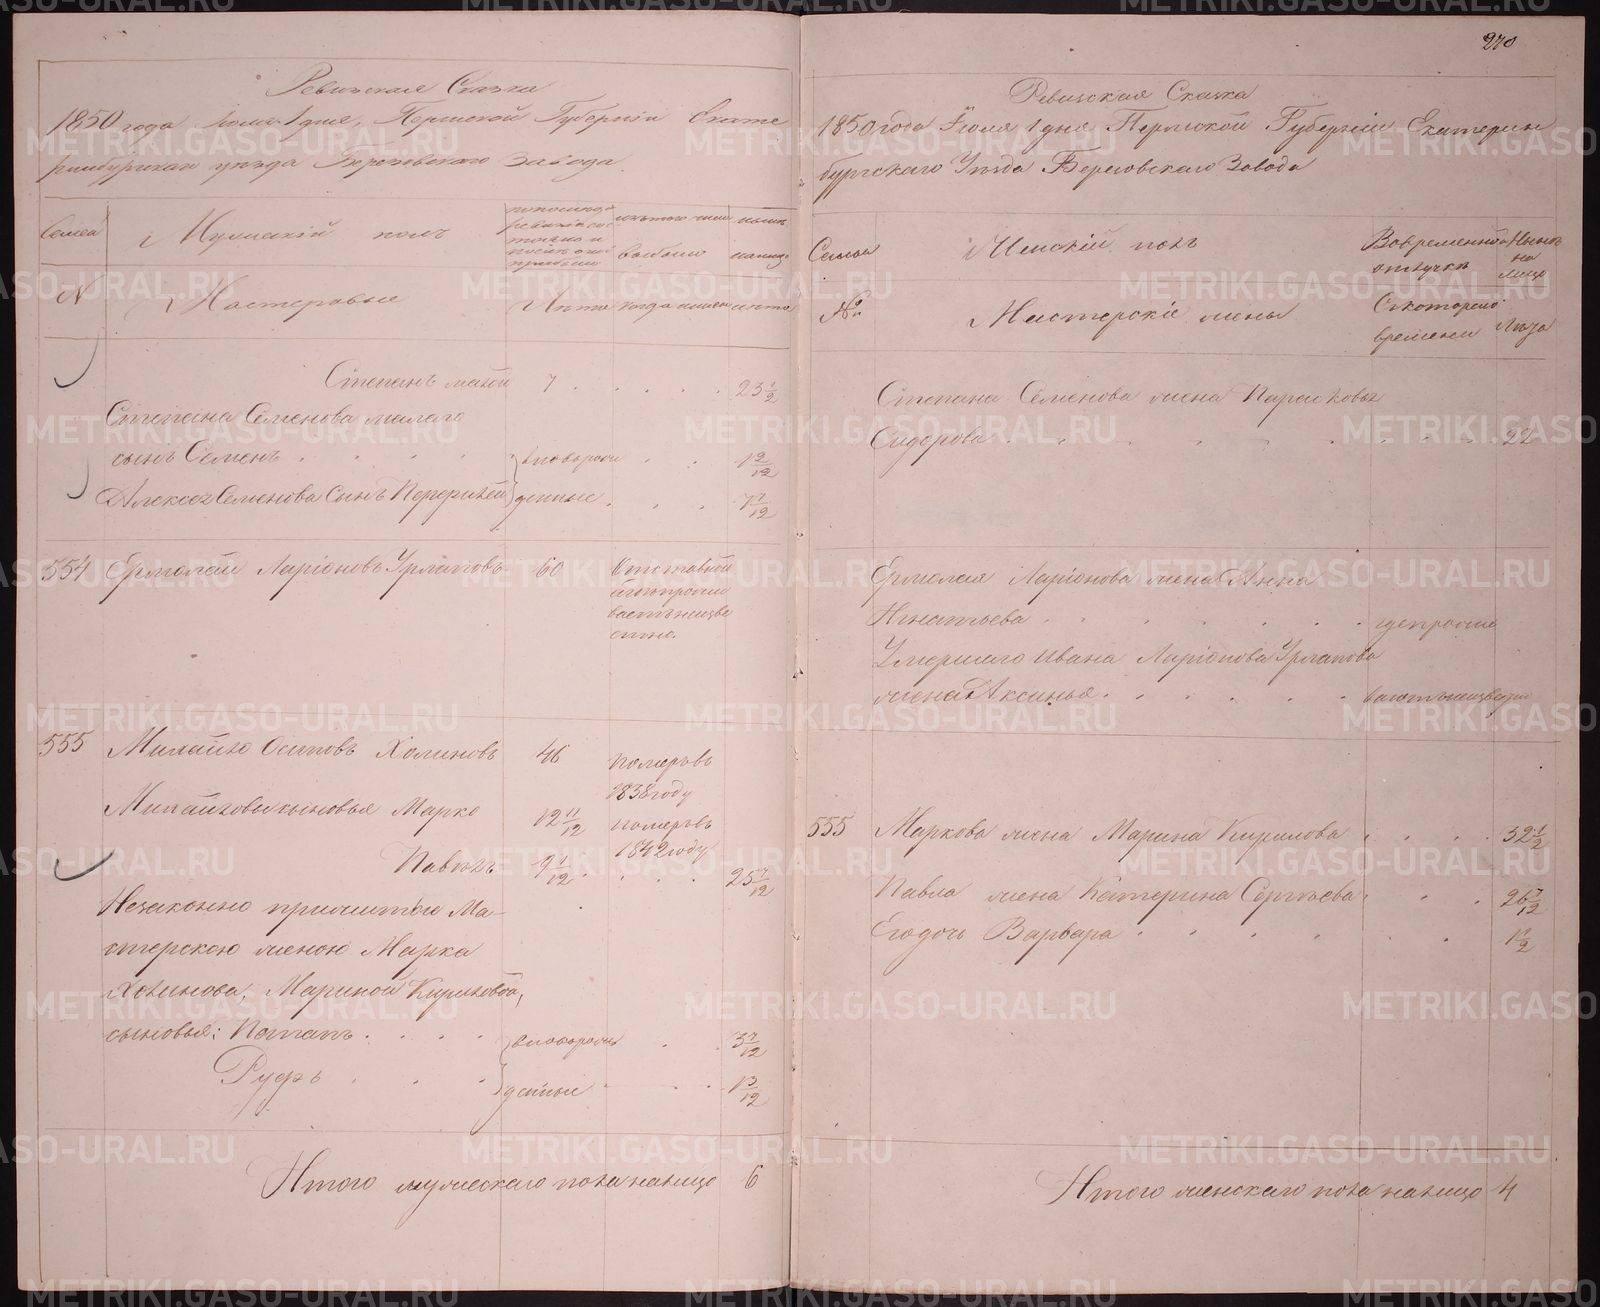 270
Ревизская Сказка
1850 года Июля 1 дня, Пермской Губернiи Екате
ринбургскаго уѣзда Березовскаго завода
Семьи
Мужескiй полъ
изъ того числа
выбыло
нынѣ
налицо
№
Мастеровые
Лѣта
когда именно
лѣта
Степанъ малой 7 23 1/2
Степана Семенова малаго
сынъ Семенъ вноворож 1 9/12
Алексея Семенова Сынъ денные 7/12
554 Ермолай Ларiоновъ Урмановъ 60 Отставной
безвѣстно
555 Михайло Осиповъ Холиновъ 46 померъ
1838 году
Михайловы сыновья Марко 12 11/12 померъ
1842 году
Павелъ 9 1/12 25 7/12
Незаконно прижитые Ма-
стерскою женою Марка
Холинова, Мариной Кириловой,
сыновья: Потапъ вноворож 3 7/12
Руфъ денные 1 3/12
Итого мужескаго пола налицо 6
Ревизская Сказка
1850 года Июля 1 дня Пермской Губернiи Екатерин
бургскаго Уѣзда Березовскаго Завода
Семьи
Женскiй полъ
Во временной
отлучкѣ
Нынѣ
на
лицо
№
Мастерскiе жены
Съ котораго
времени
Лѣта
Степана Семенова жена Парасковья
Сидорова 22
Ермолая Ларiонова жена Анна
Игнатьева
Умершаго Ивана Ларiонова Урманова
жена Аксинья
555 Маркова жена Марина Кирилова 32 1/2
Павла жена Катерина Сергѣева 26 7/12
Егодочь Варвара 1 1/2
Итого женскаго пола налицо 4
METRIKI.GASO-URAL.RU